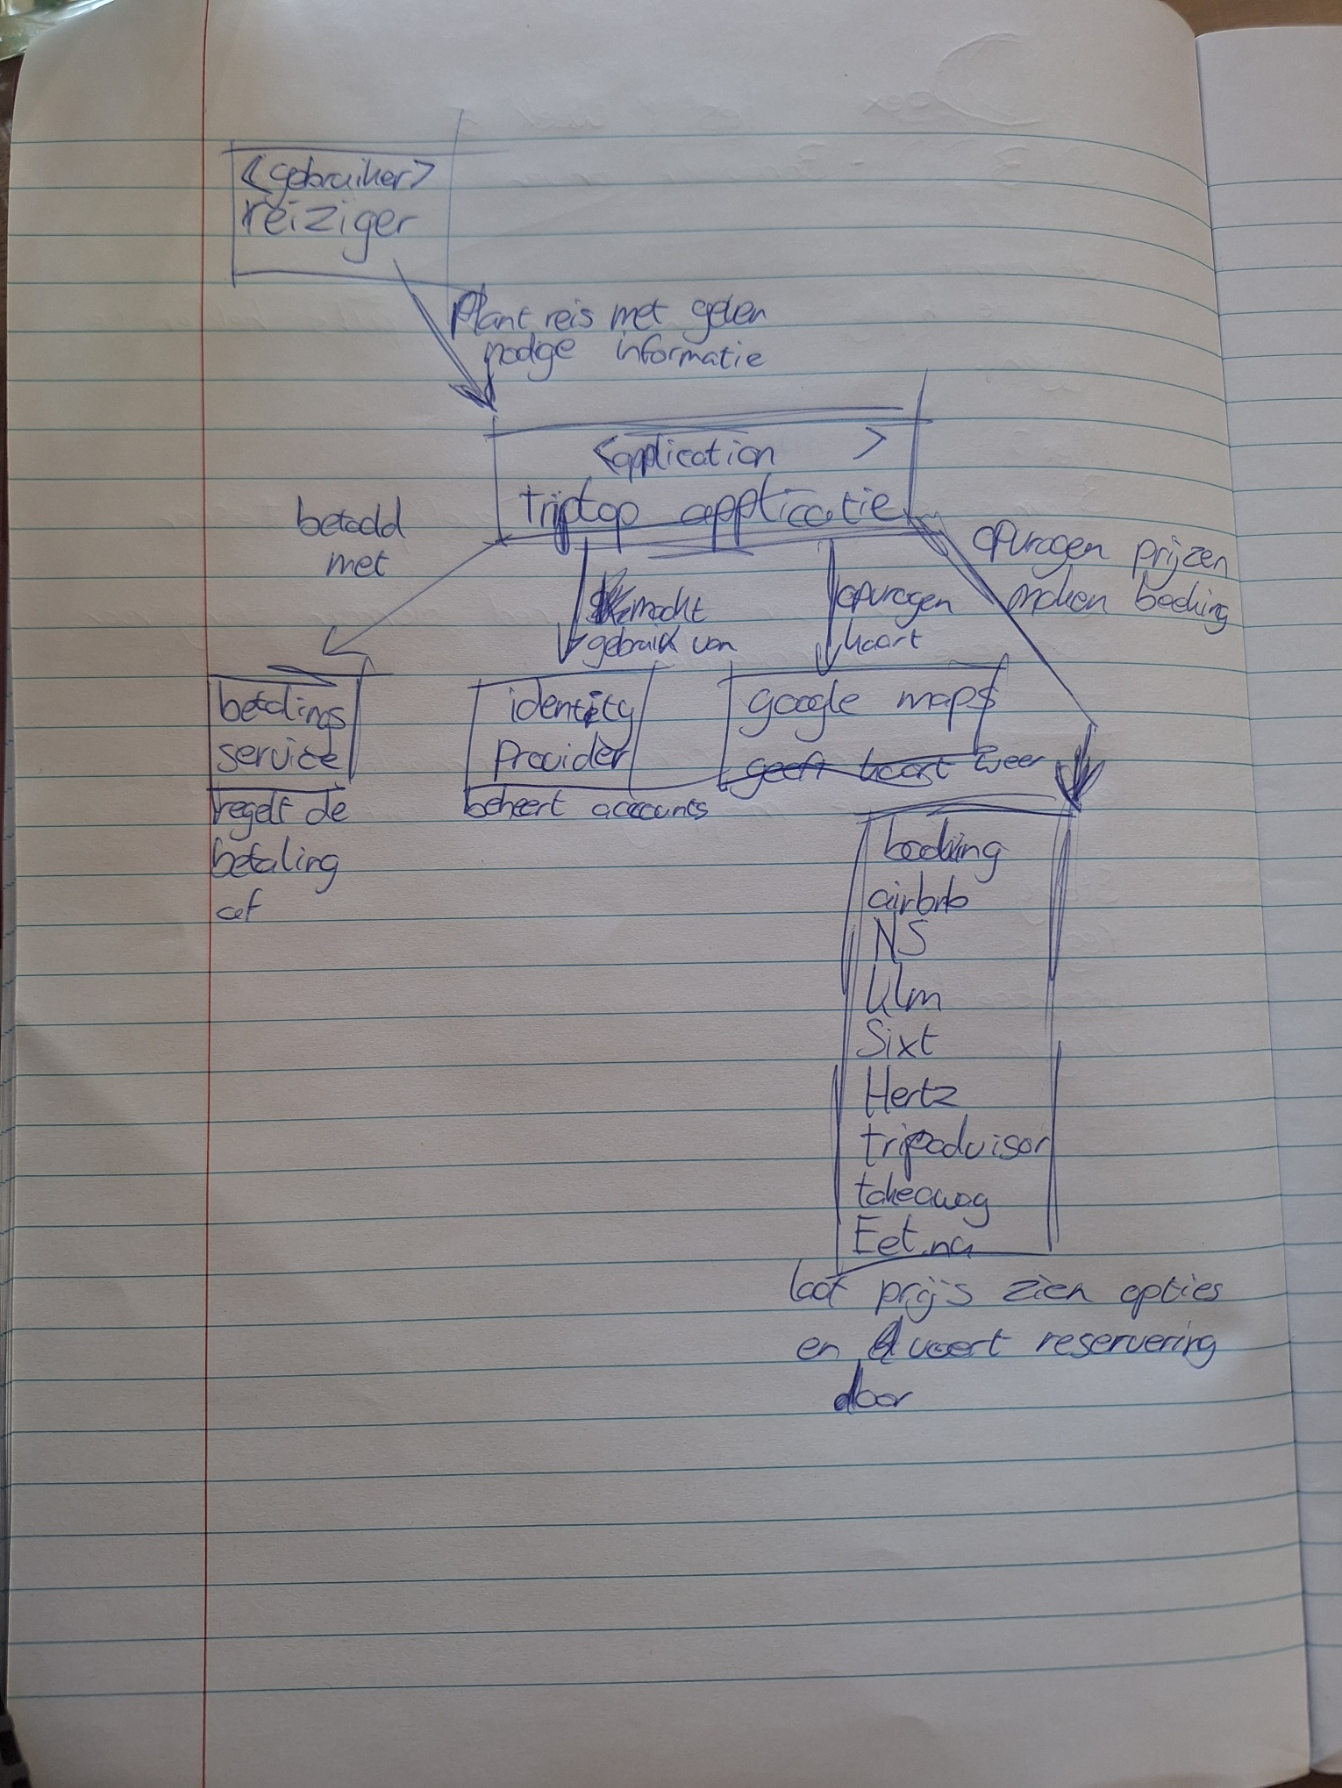 <gebruiker>
reiziger
Plant reis met
nodge informatie
<application>
triptop applicatie
betaald
met
maakt
gebruik van
opvragen
kaart
opvragen prijzen
maken boeking
betalings
service
regelt de
betaling
af
identity
Provider
beheert accounts
google maps
geeft kaart weer
booking
airbnb
NS
klm
Sixt
Hertz
tripadvisor
takeaway
Eet.nu
laat prijs zien opties
en voert reservering
door